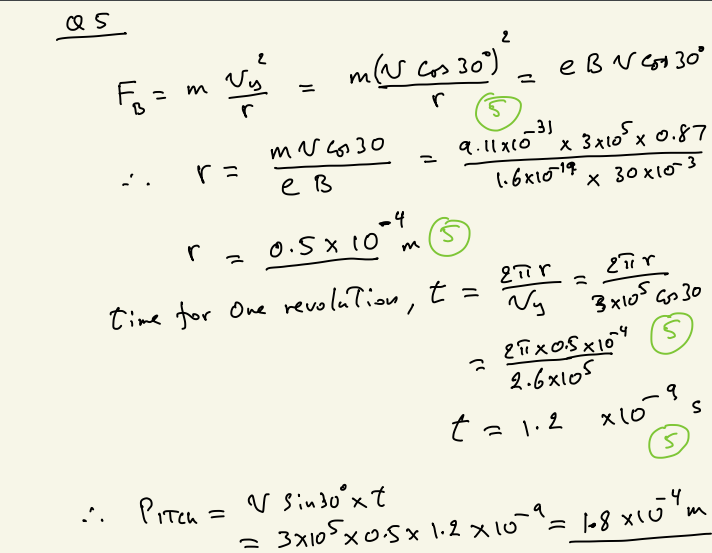 Q5
F_B = m V_y²/r = m(V cos 30°)²/r = e B V cos 30°
(5)
∴ r = m V cos 30 / e B = 9.11×10⁻³¹ × 3×10⁵ × 0.87 / 1.6×10⁻¹⁹ × 30×10⁻³
r = 0.5 × 10⁻⁴ m (5)
time for one revolution, t = 2πr/V_y = 2πr / 3×10⁵ cos 30
(5)
= 2π×0.5×10⁻⁴ / 2.6×10⁵
t = 1.2 ×10⁻⁹ s
(5)
∴ PITCH = V sin 30° × t
= 3×10⁵ × 0.5 × 1.2 × 10⁻⁹ = 1.8 × 10⁻⁴ m